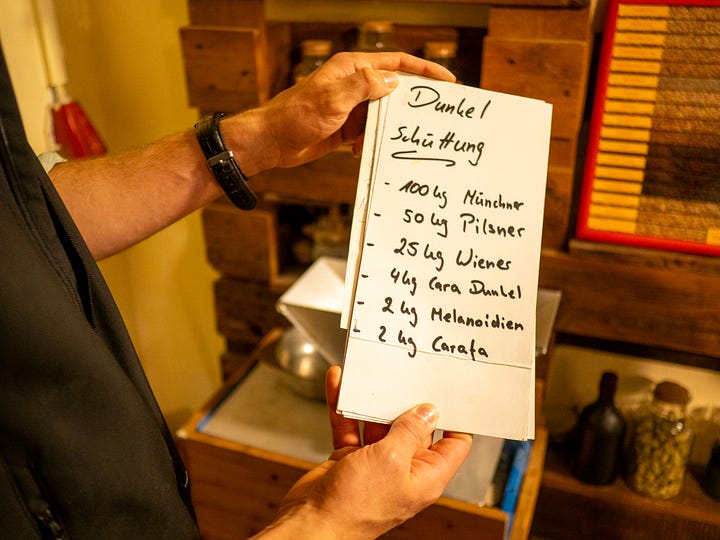 Dunkel
Schüttung
- 100kg Münchner
- 50kg Pilsner
- 25kg Wiener
- 4kg Cara Dunkel
- 2kg Melanoidien
- 2kg Carafa